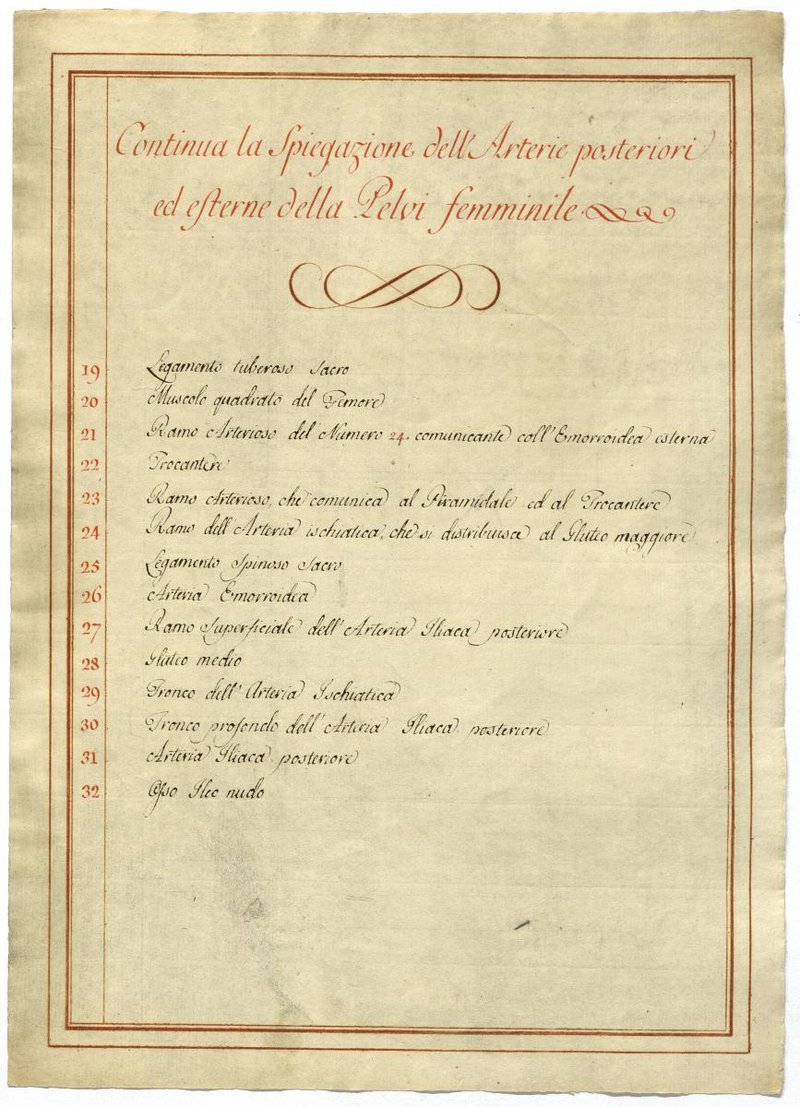 Continua la Spiegazione dell'Arterie posteriori
ed esterne della Pelvi femminile
19 Legamento tuberoso Sacro
20 Muscolo quadrato del Femore
21 Ramo Arterioso del Numero 24. comunicante coll'Emorroidea esterna
22 Trocantere
23 Ramo Arterioso, che comunica al Piramidale ed al Trocantere
24 Ramo dell'Arteria ischiatica, che si distribuisce al Gluteo maggiore
25 Legamento Spinoso Sacro
26 Arteria Emorroidea
27 Ramo Superficiale dell'Arteria Iliaca posteriore
28 Gluteo medio
29 Tronco dell'Arteria Ischiatica
30 Tronco profondo dell'Arteria Iliaca posteriore
31 Arteria Iliaca posteriore
32 Osso Ileo nudo